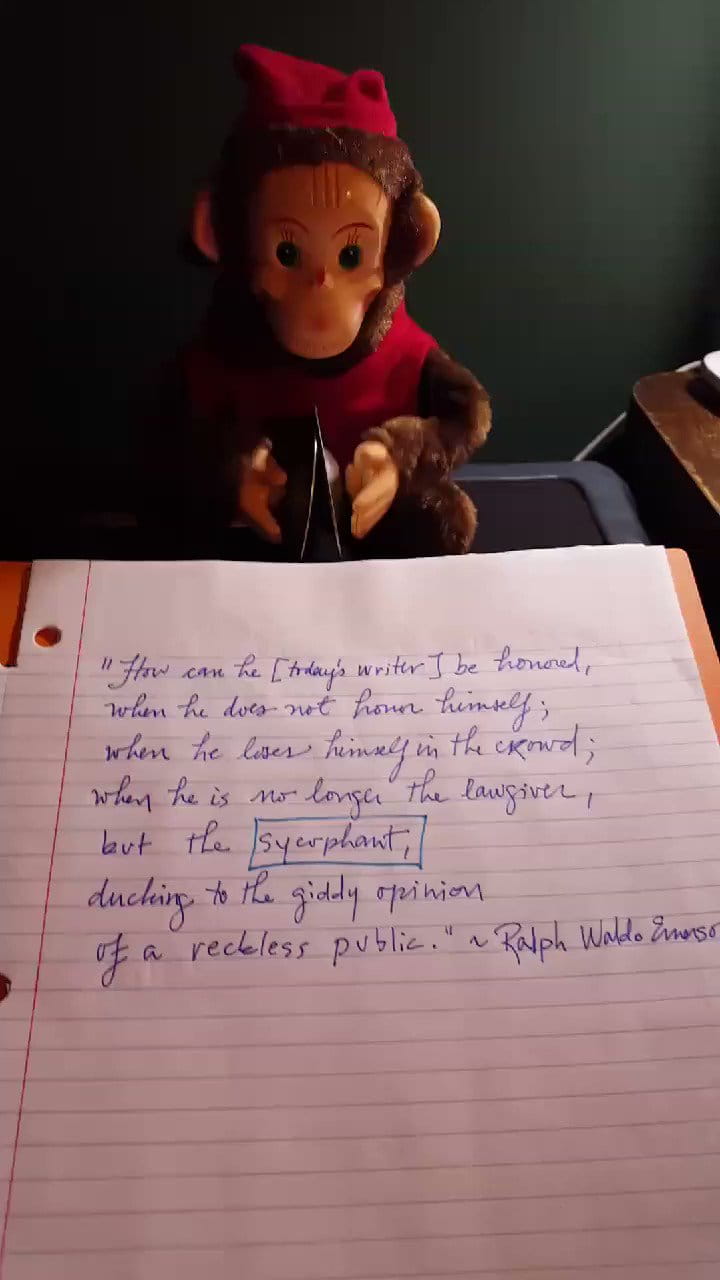 "How can he [today's writer] be honored,
when he does not honor himself;
when he loses himself in the crowd;
when he is no longer the lawgiver,
but the sycophant,
ducking to the giddy opinion
of a reckless public." ~ Ralph Waldo Emerso